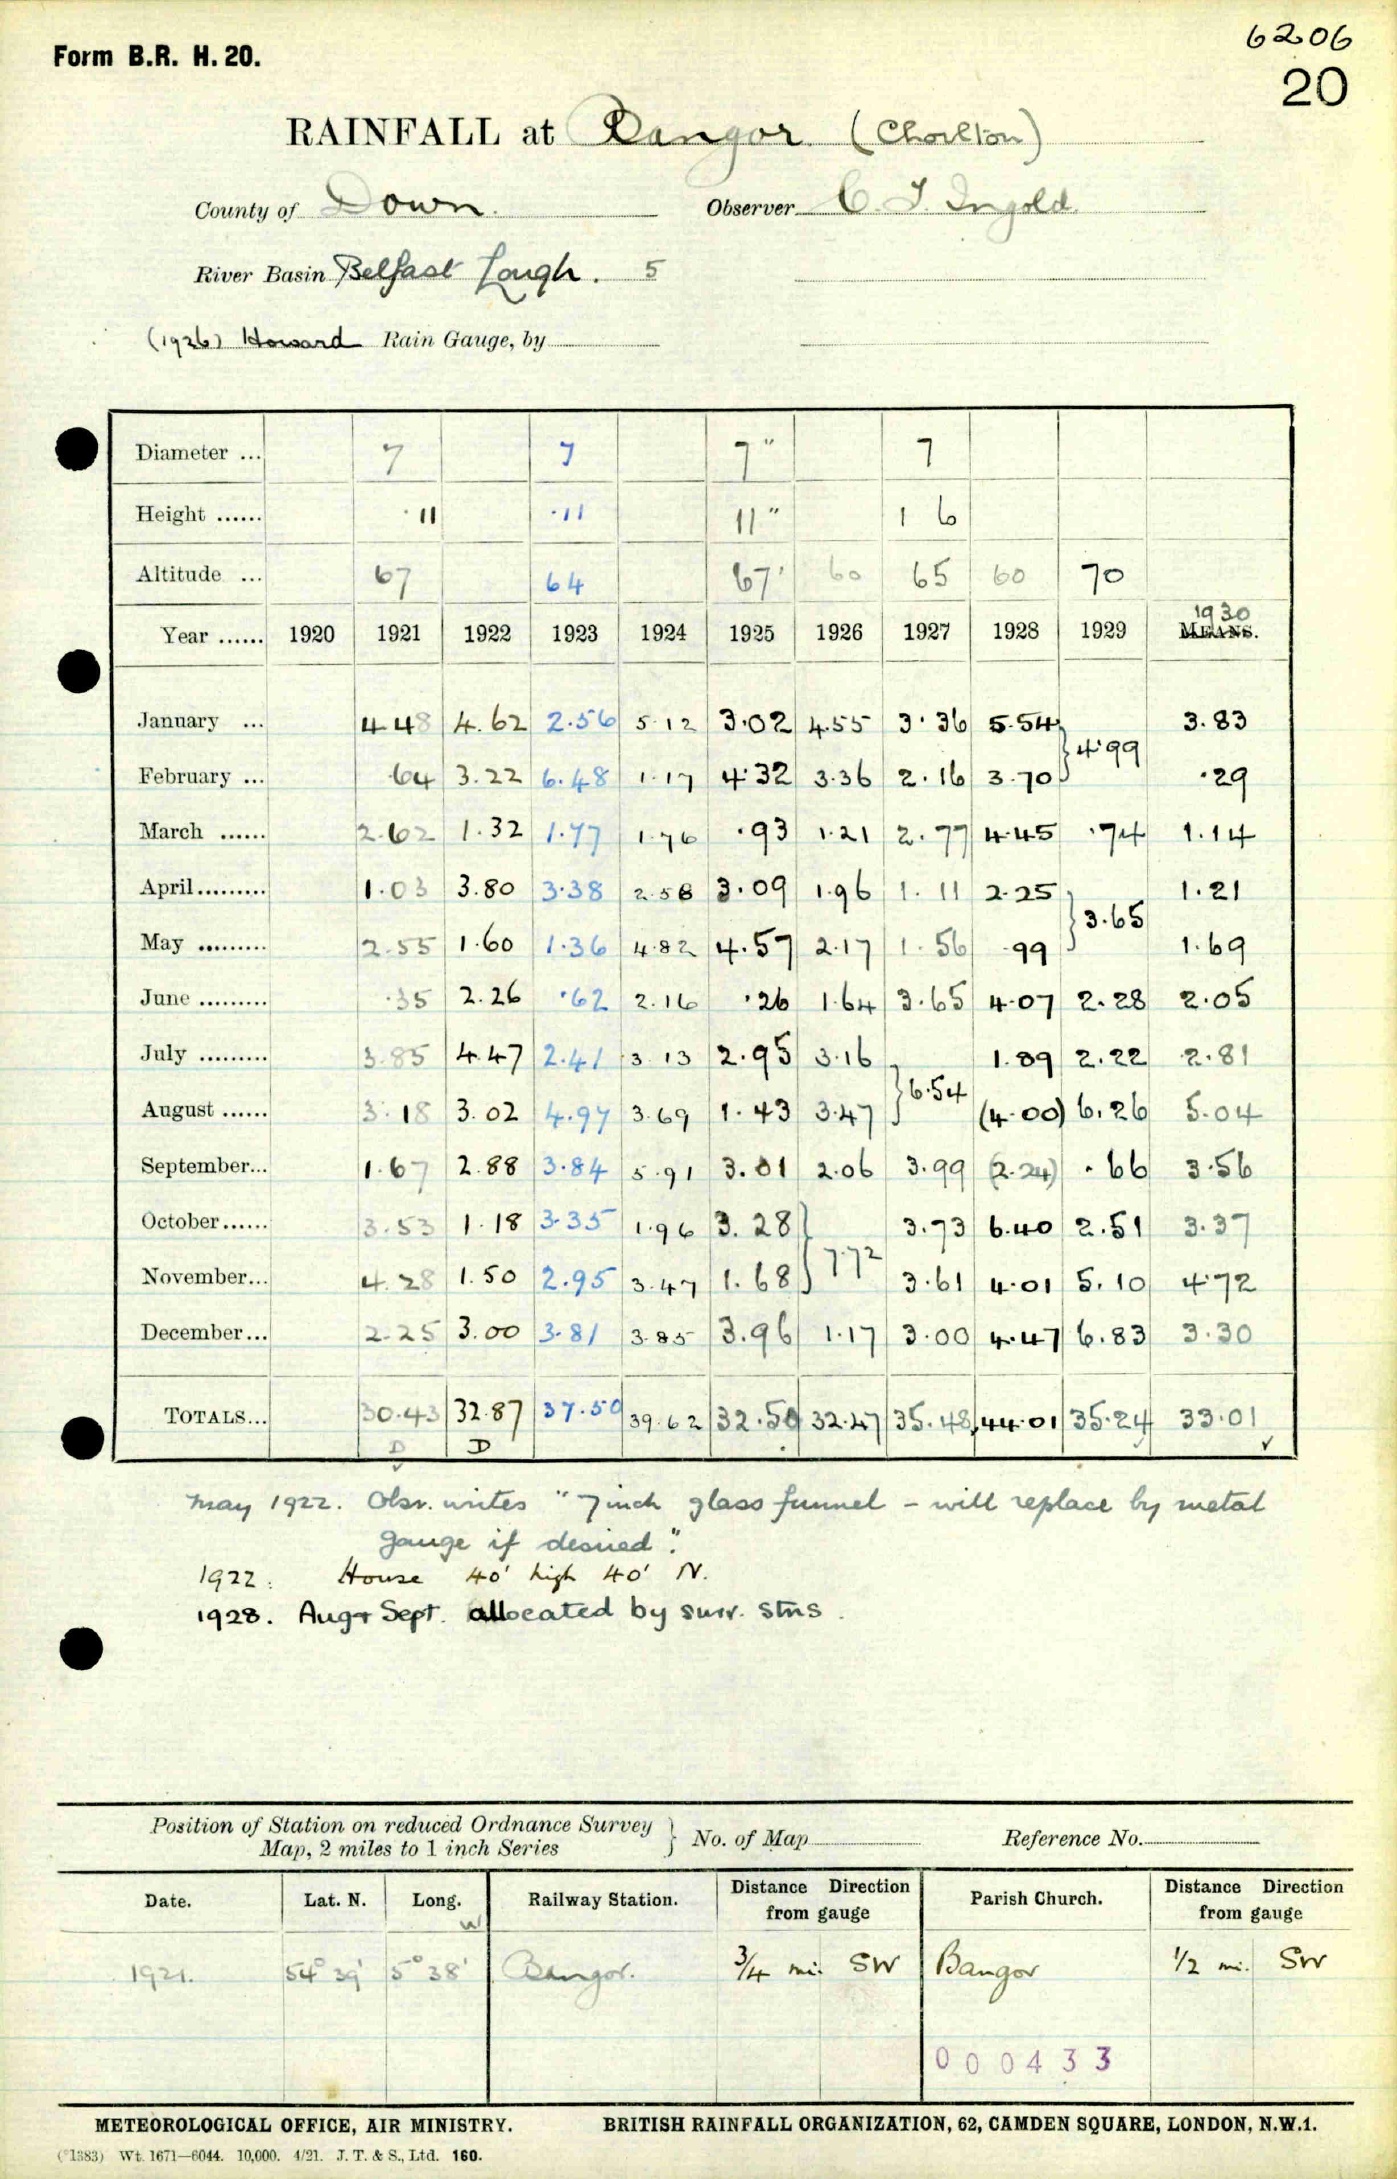 6206
Form B.R. H. 20.
20
RAINFALL at Bangor (Chorlton)
County of Down. Observer C. T. Ingold.
River Basin Belfast Lough. 5
(1926) Howard Rain Gauge, by
Diameter ... 7 7 7" 7
Height ...... ·11 ·11 11" 1 6
Altitude ... 67 64 67' 60 65 60 70
1930
Year ...... 1920 1921 1922 1923 1924 1925 1926 1927 1928 1929 MEANS.
January ... 4.48 4.62 2.56 5.12 3.02 4.55 3.36 5.54 3.83
} 4.99
February ... ·64 3.22 6.48 1.17 4.32 3.36 2.16 3.70 ·29
March ...... 2.62 1.32 1.77 1.76 ·93 1.21 2.77 4.45 ·74 1.14
April ......... 1.03 3.80 3.38 2.58 3.09 1.96 1.11 2.25 1.21
} 3.65
May ......... 2.55 1.60 1.36 4.82 4.57 2.17 1.56 ·99 1.69
June ......... ·35 2.26 ·62 2.16 ·26 1.64 3.65 4.07 2.28 2.05
July ......... 3.85 4.47 2.41 3.13 2.95 3.16 1.89 2.22 2.81
} 6.54
August ...... 3.18 3.02 4.97 3.69 1.43 3.47 (4.00) 6.26 5.04
September... 1.67 2.88 3.84 5.91 3.01 2.06 3.99 (2.24) ·66 3.56
October...... 3.53 1.18 3.35 1.96 3.28 3.73 6.40 2.51 3.37
} 7.72
November... 4.28 1.50 2.95 3.47 1.68 3.61 4.01 5.10 4.72
December... 2.25 3.00 3.81 3.85 3.96 1.17 3.00 4.47 6.83 3.30
TOTALS... 30.43 32.87 37.50 39.62 32.50 32.47 35.48 44.01 35.24 33.01
D D
May 1922. Obsr. writes "7 inch glass funnel – will replace by metal
gauge if desired".
1922. House 40' high 40' N.
1928. Aug + Sept. allocated by surr. stns.
Position of Station on reduced Ordnance Survey
Map, 2 miles to 1 inch Series } No. of Map Reference No.
Date. Lat. N. Long. W Railway Station. Distance Direction from gauge Parish Church. Distance Direction from gauge
1921. 54° 39' 5° 38' Bangor. 3/4 mi. SW Bangor 1/2 mi. SW
000433
METEOROLOGICAL OFFICE, AIR MINISTRY. BRITISH RAINFALL ORGANIZATION, 62, CAMDEN SQUARE, LONDON, N.W.1.
(*1383) Wt. 1671—6044. 10,000. 4/21. J. T. & S., Ltd. 160.